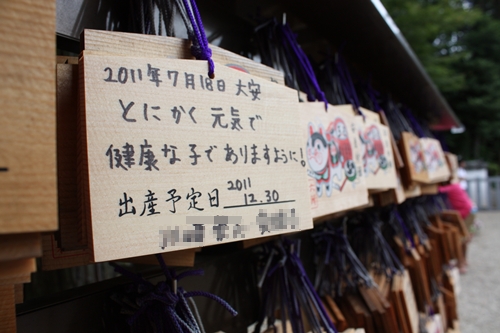 2011年7月18日 大安
とにかく 元気で
健康な子でありますように!
出産予定日 2011
12.30